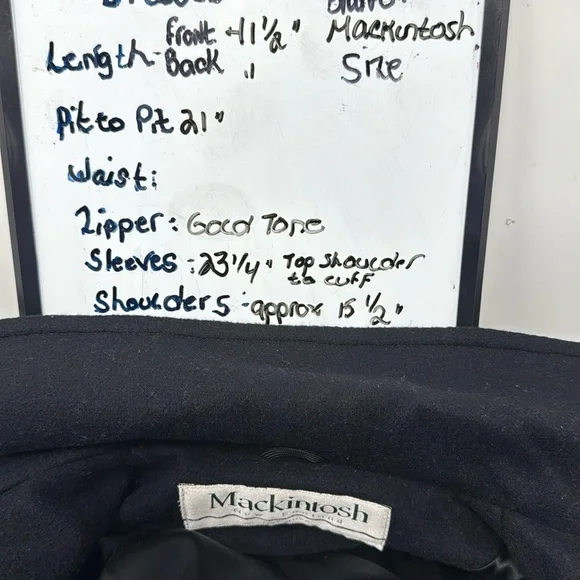 Length- Front -41 1/2" Mackintosh
Back " Size
Pit to Pit 21"
Waist:
Zipper: Good Tone
Sleeves: 23 1/4" Top Shoulder to cuff
Shoulders - approx 15 1/2"
Mackintosh
New England